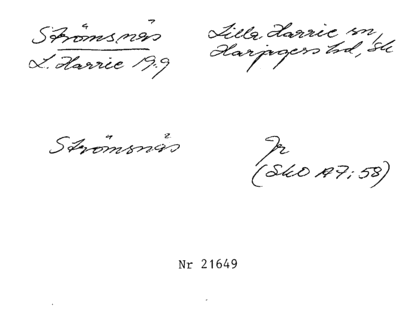 Strömsnäs
L. Harrie 19:9
Lilla Harrie sn,
Harjagers hd, Sk
Strömsnäs
Jr
(SkO A7:58)
Nr 21649